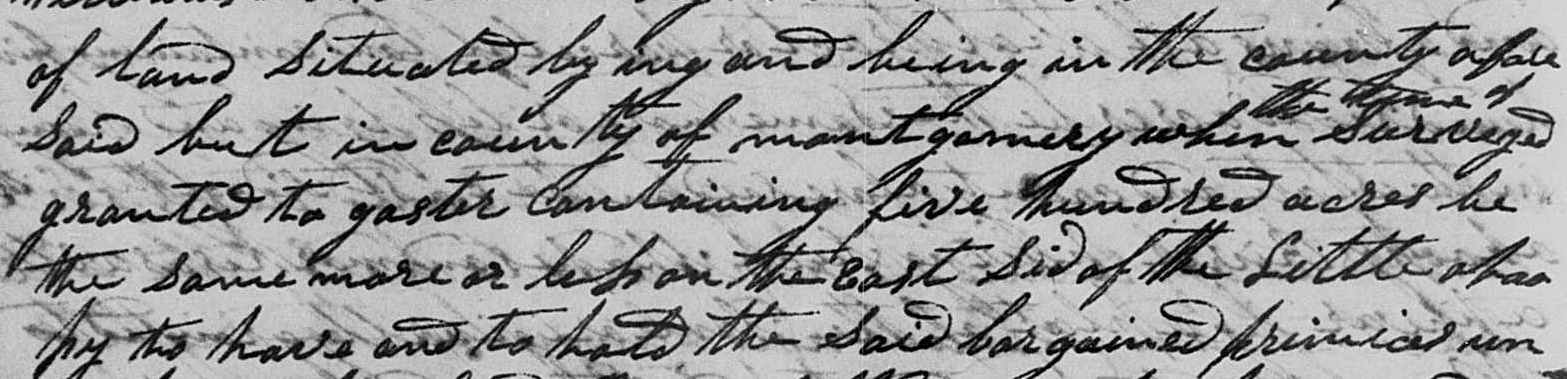 of land Situated ly ing and being in the county afore
the tyme of
Said but in coun ty of mantgomery when Surveyed
granted to gaster Containing five hundred acres be
the same more or less on the East Sid of the Little ohoo
py to have and to hold the Said bargained primices un